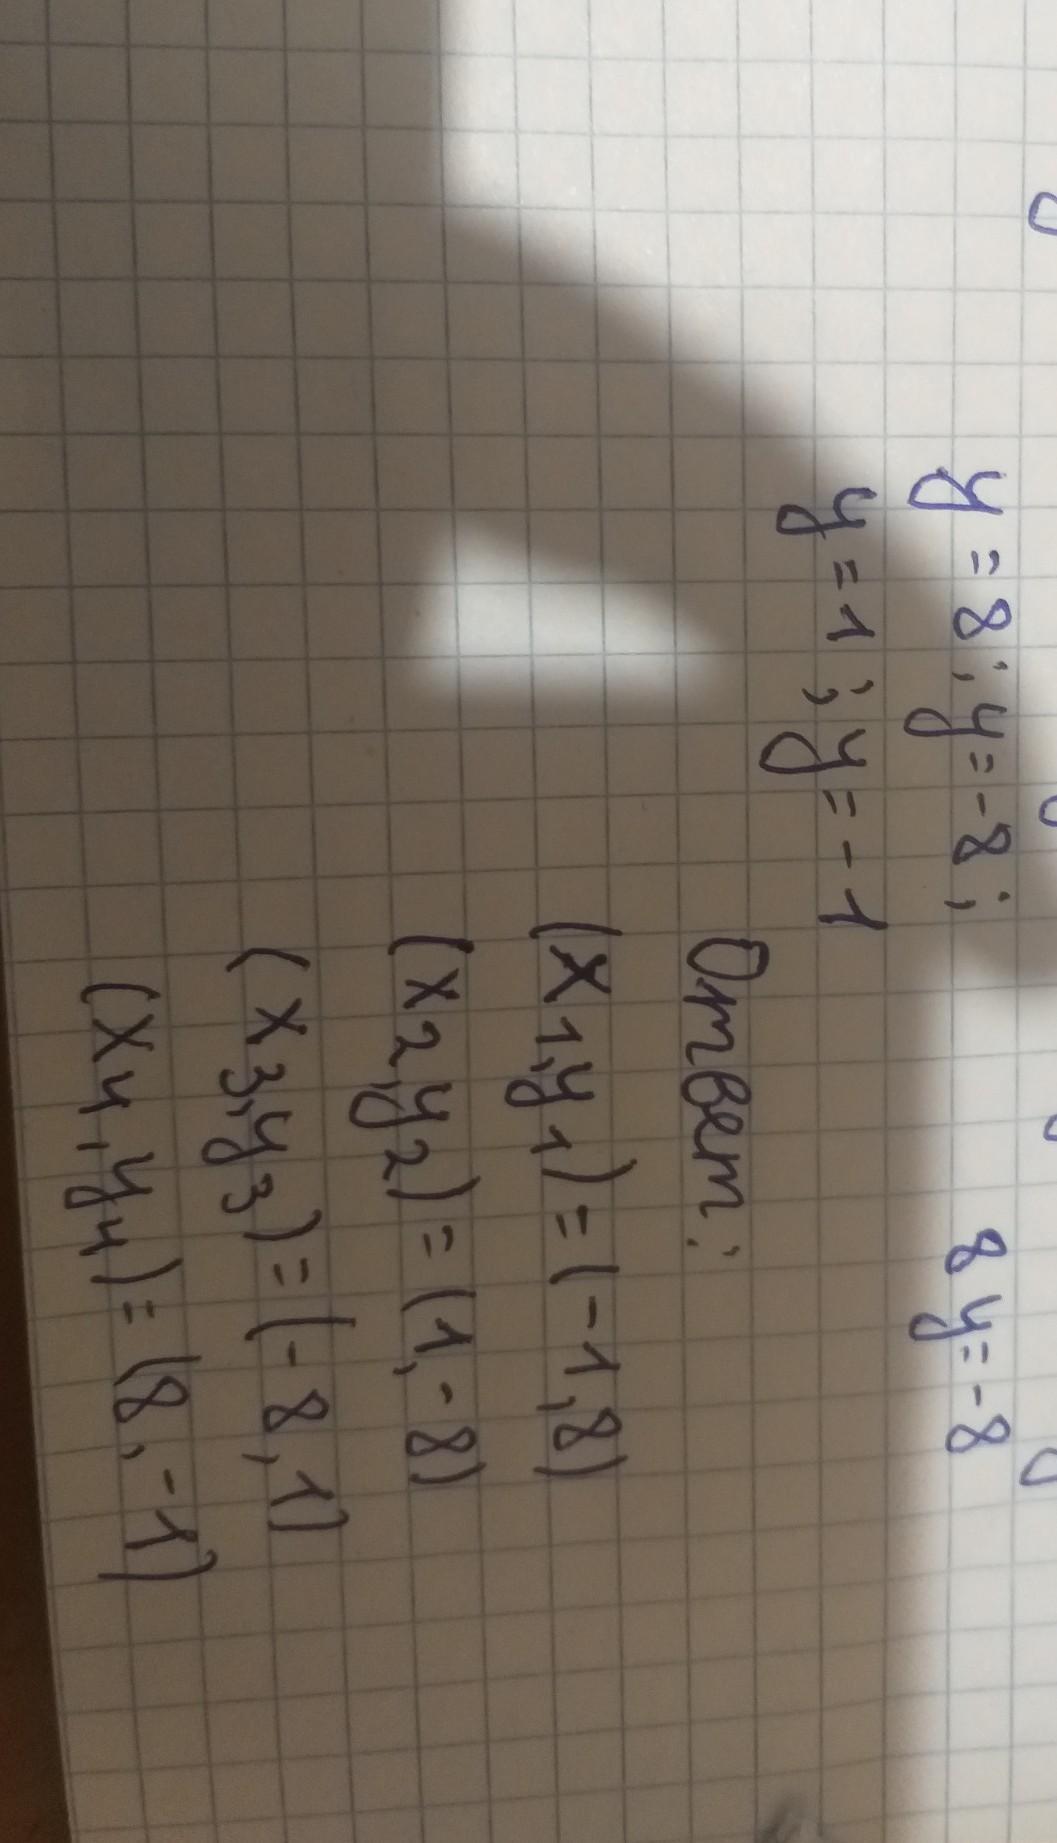 y = 8; y = -8; 8y = -8
y = 1; y = -1
Ответ:
(x1,y1) = (-1,8)
(x2,y2) = (1,-8)
(x3,y3) = (-8,1)
(x4,y4) = (8,-1)